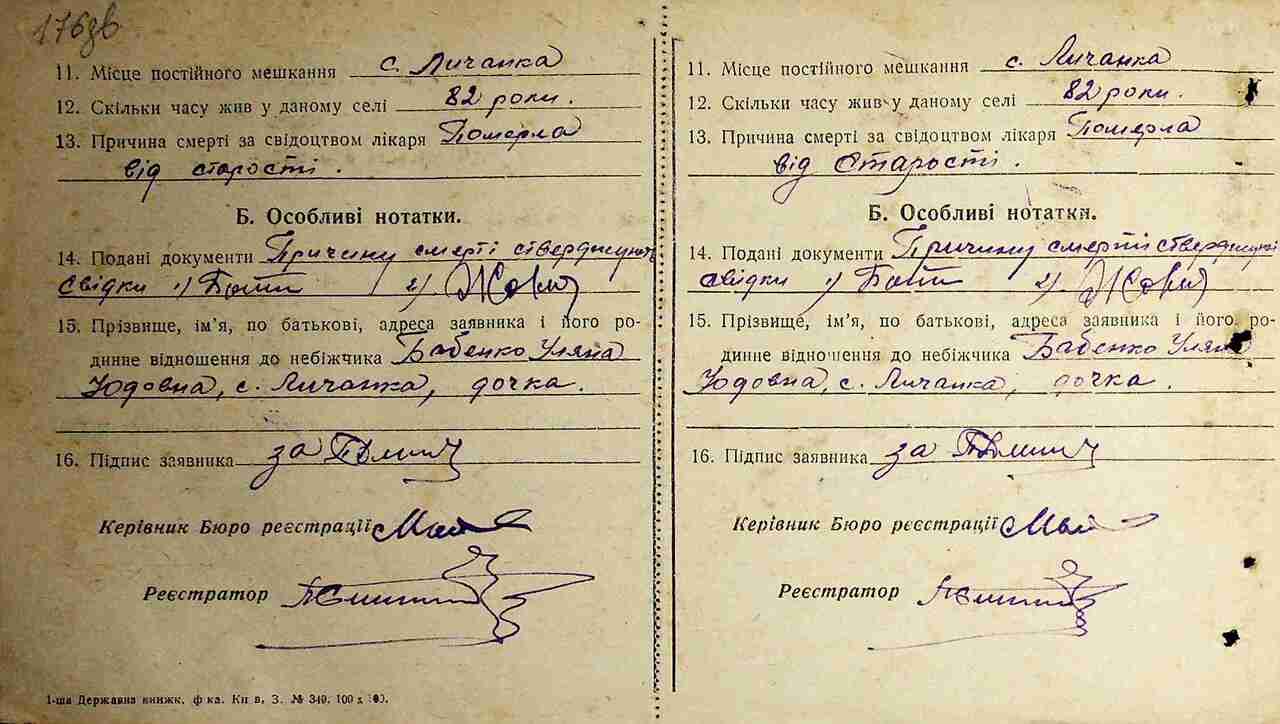 176зв
11. Місце постійного мешкання с. Личанка
12. Скільки часу жив у даному селі 82 роки.
13. Причина смерті за свідоцтвом лікаря Померла
від старості.
Б. Особливі нотатки.
14. Подані документи Причину смерті стверджують
свідки 1) 2)
15. Прізвище, ім'я, по батькові, адреса заявника і його ро-
динне відношення до небіжчика Бабенко Уляна
Юдовна, с. Личанка, дочка.
16. Підпис заявника за
Керівник Бюро реєстрації
Реєстратор
1-ша Державна книжк. ф-ка. Київ, З. № 349. 100 х
11. Місце постійного мешкання с. Личанка
12. Скільки часу жив у даному селі 82 роки.
13. Причина смерті за свідоцтвом лікаря Померла
від Старості.
Б. Особливі нотатки.
14. Подані документи Причину смерті стверджують
свідки 1) 2)
15. Прізвище, ім'я, по батькові, адреса заявника і його ро-
динне відношення до небіжчика Бабенко Уляна
Юдовна, с. Личанка, дочка.
16. Підпис заявника за
Керівник Бюро реєстрації
Реєстратор